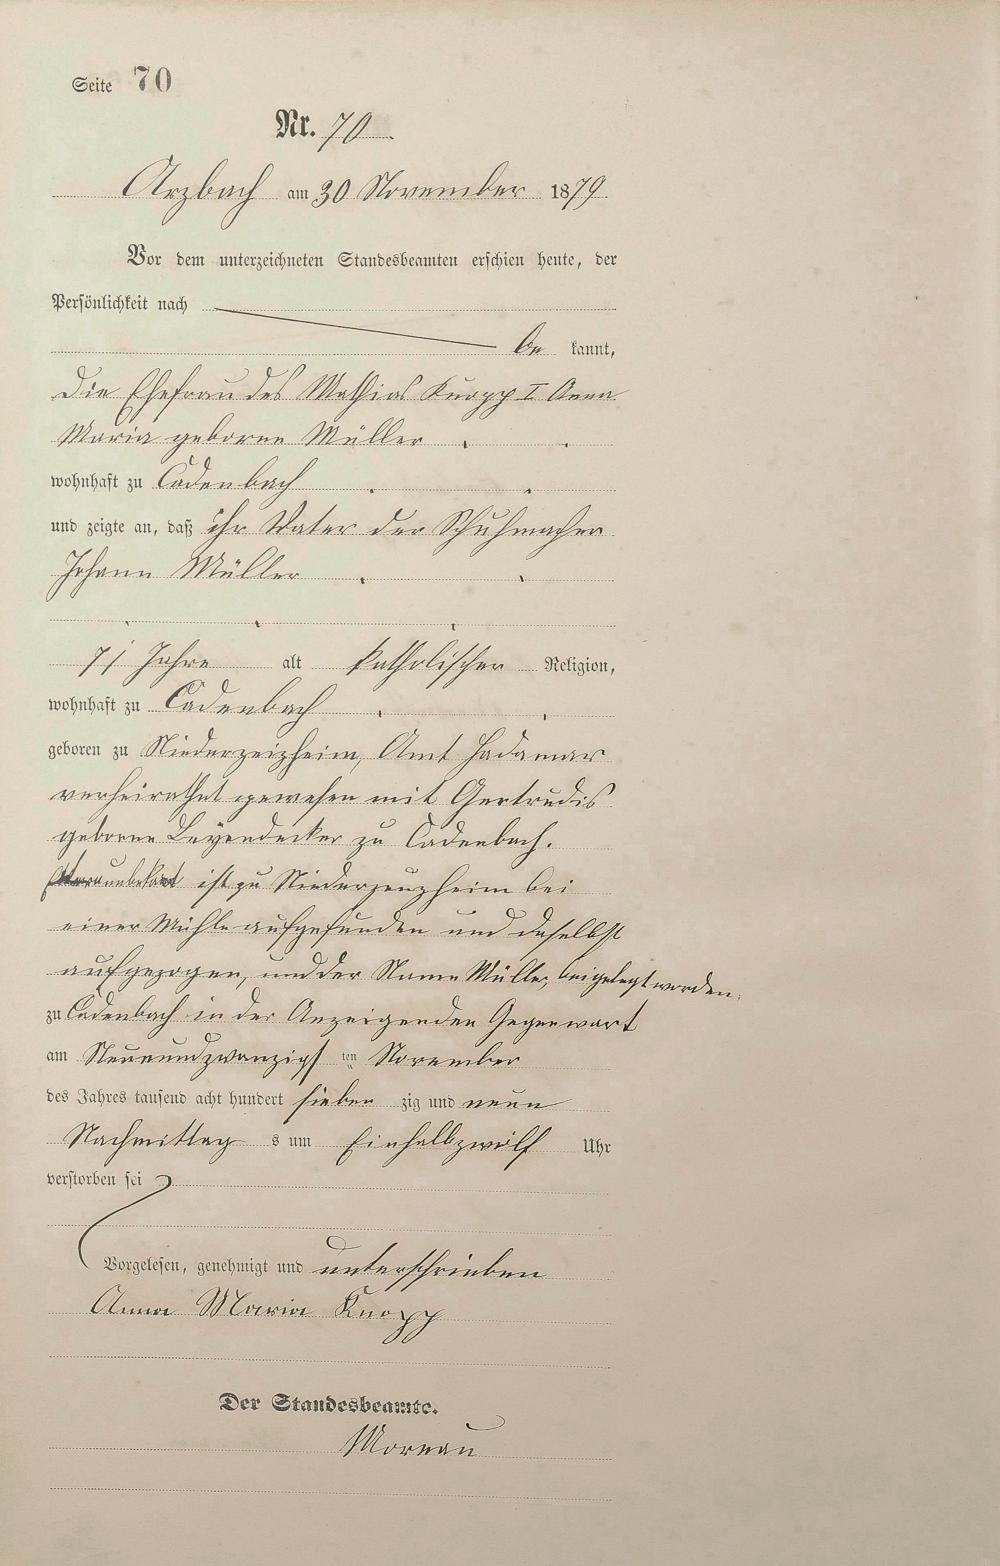 Seite 70
Nr. 70.
Arzbach am 30 November 1879.
Vor dem unterzeichneten Standesbeamten erschien heute, der
Persönlichkeit nach
be kannt,
die Ehefrau des Mathias Knopp I Anna
Maria geborne Müller
wohnhaft zu Cadenbach
und zeigte an, daß ihr Vater der Schuhmacher
Johann Müller
71 Jahre alt katholischer Religion,
wohnhaft zu Cadenbach
geboren zu Niederzeizheim, Amt Hadamar
verheirathet gewesen mit Gertrudis
geborne Leyendecker zu Cadenbach.
ist zu Niederzeuzheim bei
einer Mühle aufgefunden und daselbst
aufgezogen, und der Name Müller, beigelegt worden.
zu Cadenbach in der Anzeigenden Gegenwart
am Neunundzwanzigsten November
des Jahres tausend acht hundert sieben zig und neun
Nachmittag s um Einhalbzwölf Uhr
verstorben sei
Vorgelesen, genehmigt und unterschrieben
Anna Maria Knopp
Der Standesbeamte.
Moreau